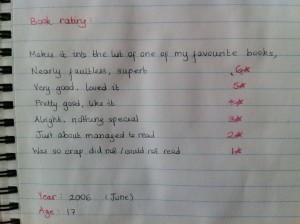 Book rating:
Makes it into the list of one of my favourite books,
Nearly faultless, superb 6*
Very good, loved it 5*
Pretty good, like it 4*
Alright, nothing special 3*
Just about managed to read 2*
Was so crap did not/could not read 1*
Year: 2006 (June)
Age: 17